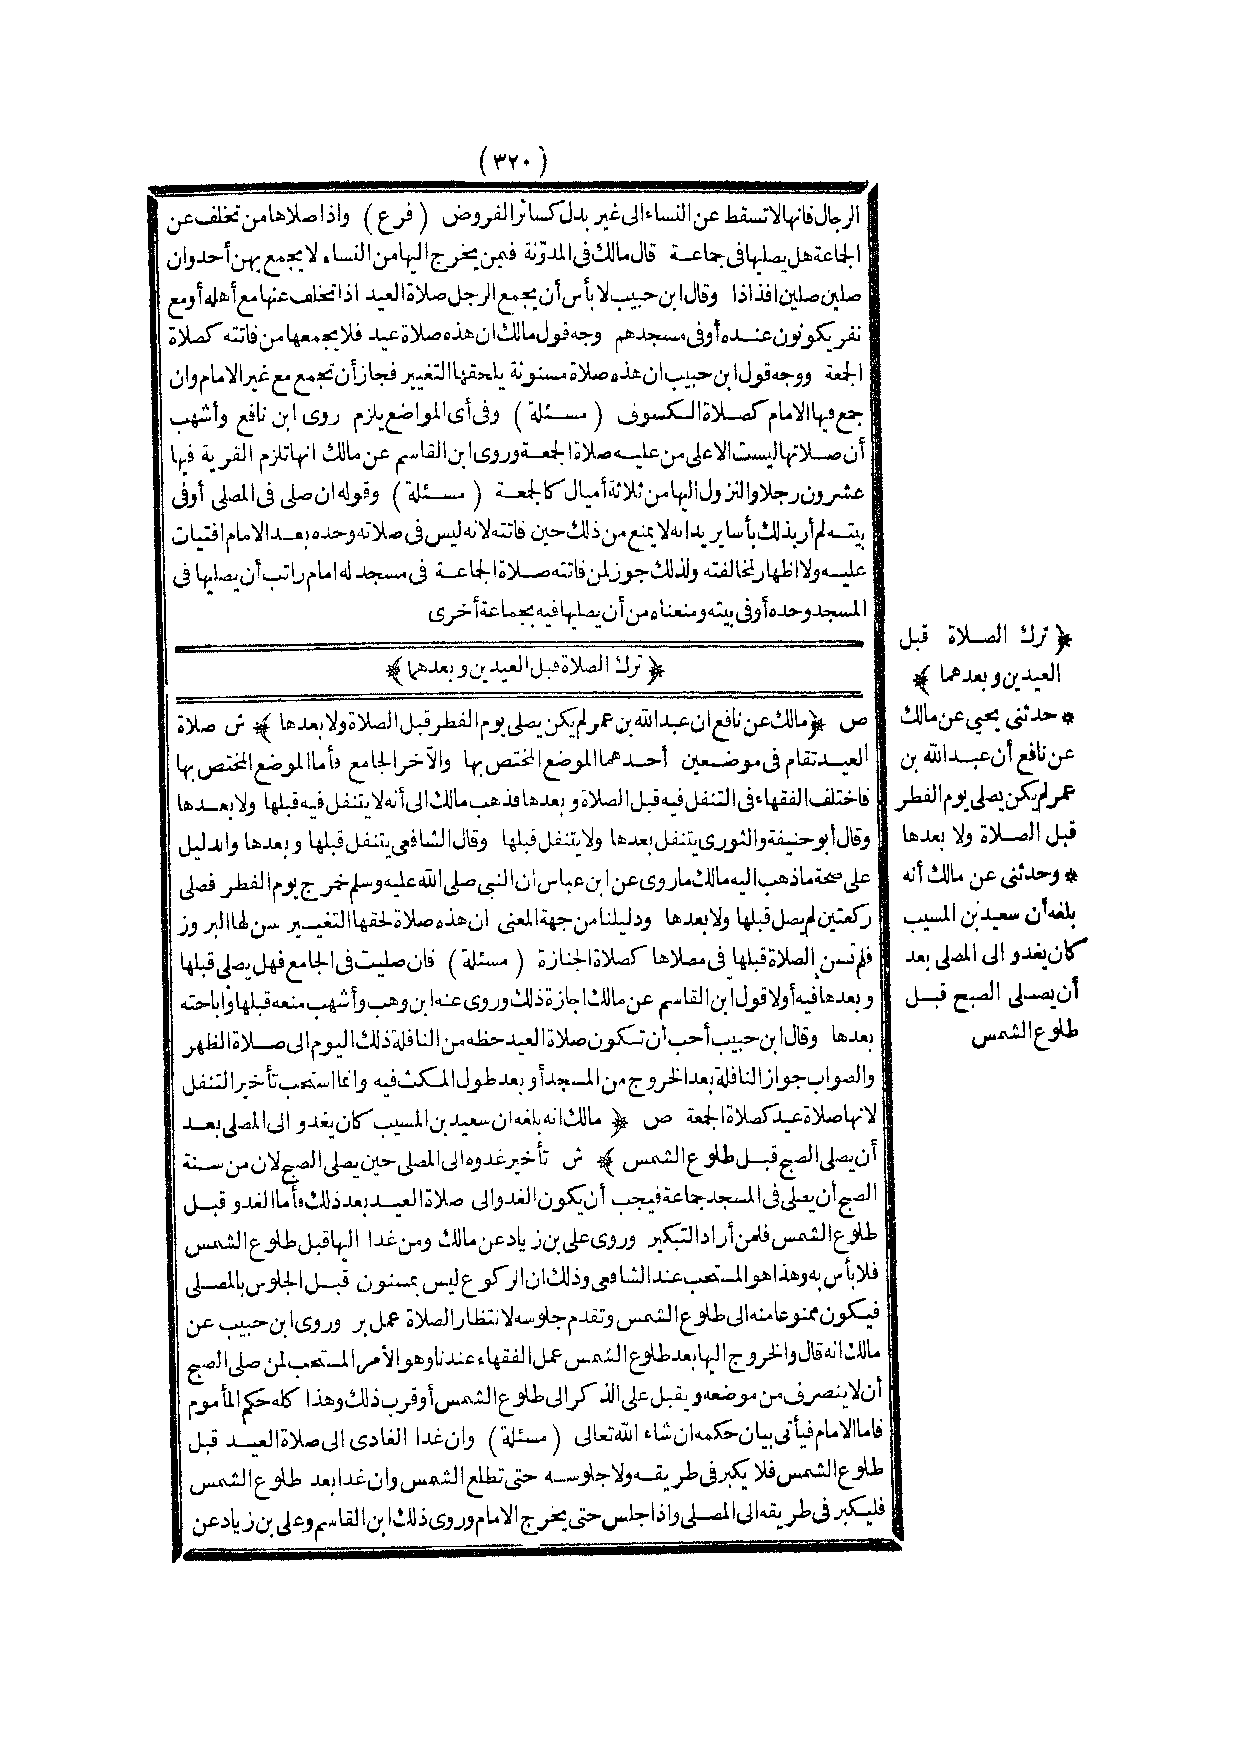 (٣٢٠)
الرجال فانها لا تسقط عن النساء الى غير بدل كسائر الفروض (فرع) واذا صلاها من تخلف عن
الجماعة هل يصليها فى جماعة قال مالك فى المدوّنة فيمن يخرج اليها من النساء لا يجمع بهن أحد وان
صلين صلين افذاذا وقال ابن حبيب لا بأس أن يجمع الرجل صلاة العيد اذا تخلف عنها مع أهله أو مع
نفر يكونون عنده أو فى مسجدهم وجه قول مالك ان هذه صلاة عيد فلا يجمعها من فاتته كصلاة
الجمعة ووجه قول ابن حبيب ان هذه صلاة مسنونة يلحقها التغيير فجاز أن تجمع مع غير الامام وان
جمع فيها الامام كصلاة الكسوف (مسئلة) وفى أى المواضع يلزم روى ابن نافع وأشهب
أن صلاتها ليست الا على من عليه صلاة الجمعة وروى ابن القاسم عن مالك انها تلزم القرية فيها
عشرون رجلا والنزول اليها من ثلاثة أميال كالجمعة (مسئلة) وقوله ان صلى فى المصلى أو فى
بيته لم أر بذلك بأسا يريد انه لا يمنع من ذلك حين فاتته لانه ليس فى صلاته وحده بعد الامام افتيات
عليه ولا اظهار لمخالفته ولذلك جوز لمن فاتته صلاة الجماعة فى مسجد له امام راتب أن يصليها فى
المسجد وحده أو فى بيته ومنعناه من أن يصليها فيه بجماعة أخرى
﴿ ترك الصلاة قبل العيدين وبعدهما ﴾
ص ﴿ مالك عن نافع ان عبد الله بن عمر لم يكن يصلى يوم الفطر قبل الصلاة ولا بعدها ﴾ ش صلاة
العيد تقام فى موضعين أحدهما الموضع المختص بها والآخر الجامع فأما الموضع المختص بها
فاختلف الفقهاء فى التنفل فيه قبل الصلاة وبعدها فذهب مالك الى أنه لا يتنفل فيه قبلها ولا بعدها
وقال أبو حنيفة والثورى يتنفل بعدها ولا يتنفل قبلها وقال الشافعى يتنفل قبلها وبعدها والدليل
على صحة ما ذهب اليه مالك ما روى عن ابن عباس ان النبى صلى الله عليه وسلم خرج يوم الفطر فصلى
ركعتين لم يصل قبلها ولا بعدها ودليلنا من جهة المعنى ان هذه صلاة لحقها التغيير سن لها البروز
فلم تسن الصلاة قبلها فى مصلاها كصلاة الجنازة (مسئلة) فان صليت فى الجامع فهل يصلى قبلها
وبعدها فيه أولا قول ابن القاسم عن مالك اجازة ذلك وروى عنه ابن وهب وأشهب منعه قبلها واباحته
بعدها وقال ابن حبيب أحب أن تكون صلاة العيد حظه من النافلة ذلك اليوم الى صلاة الظهر
والصواب جواز النافلة بعد الخروج من المسجد أو بعد طول المكث فيه وانما استحب تأخير التنفل
لانها صلاة عيد كصلاة الجمعة ص ﴿ مالك انه بلغه ان سعيد بن المسيب كان يغدو الى المصلى بعد
أن يصلى الصبح قبل طلوع الشمس ﴾ ش تأخير غدوه الى المصلى حين يصلى الصبح لان من سنة
الصبح أن يصلى فى المسجد جماعة فيجب أن يكون الغدو الى صلاة العيد بعد ذلك فأما الغدو قبل
طلوع الشمس فلمن أراد التبكير وروى على بن زياد عن مالك ومن غدا اليها قبل طلوع الشمس
فلا بأس به وهذا هو المستحب عند الشافعى وذلك ان الركوع ليس بمسنون قبل الجلوس بالمصلى
فيكون ممنوعا منه الى طلوع الشمس وتقدم جلوسه لانتظار الصلاة عمل بر وروى ابن حبيب عن
مالك انه قال والخروج اليها بعد طلوع الشمس عمل الفقهاء عندنا وهو الأمر المستحب لمن صلى الصبح
أن لا ينصرف من موضعه ويقبل على الذكر الى طلوع الشمس أو قرب ذلك وهذا كله حكم المأموم
فاما الامام فيأتى بيان حكمه ان شاء الله تعالى (مسئلة) وان غدا الغادى الى صلاة العيد قبل
طلوع الشمس فلا يكبر فى طريقه ولا جلوسه حتى تطلع الشمس وان غدا بعد طلوع الشمس
فليكبر فى طريقه الى المصلى واذا جلس حتى يخرج الامام وروى ذلك ابن القاسم وعلى بن زياد عن
﴿ ترك الصلاة قبل
العيدين وبعدهما ﴾
* حدثنى يحيى عن مالك
عن نافع أن عبد الله بن
عمر لم يكن يصلى يوم الفطر
قبل الصلاة ولا بعدها
* وحدثنى عن مالك أنه
بلغه أن سعيد بن المسيب
كان يغدو الى المصلى بعد
أن يصلى الصبح قبل
طلوع الشمس